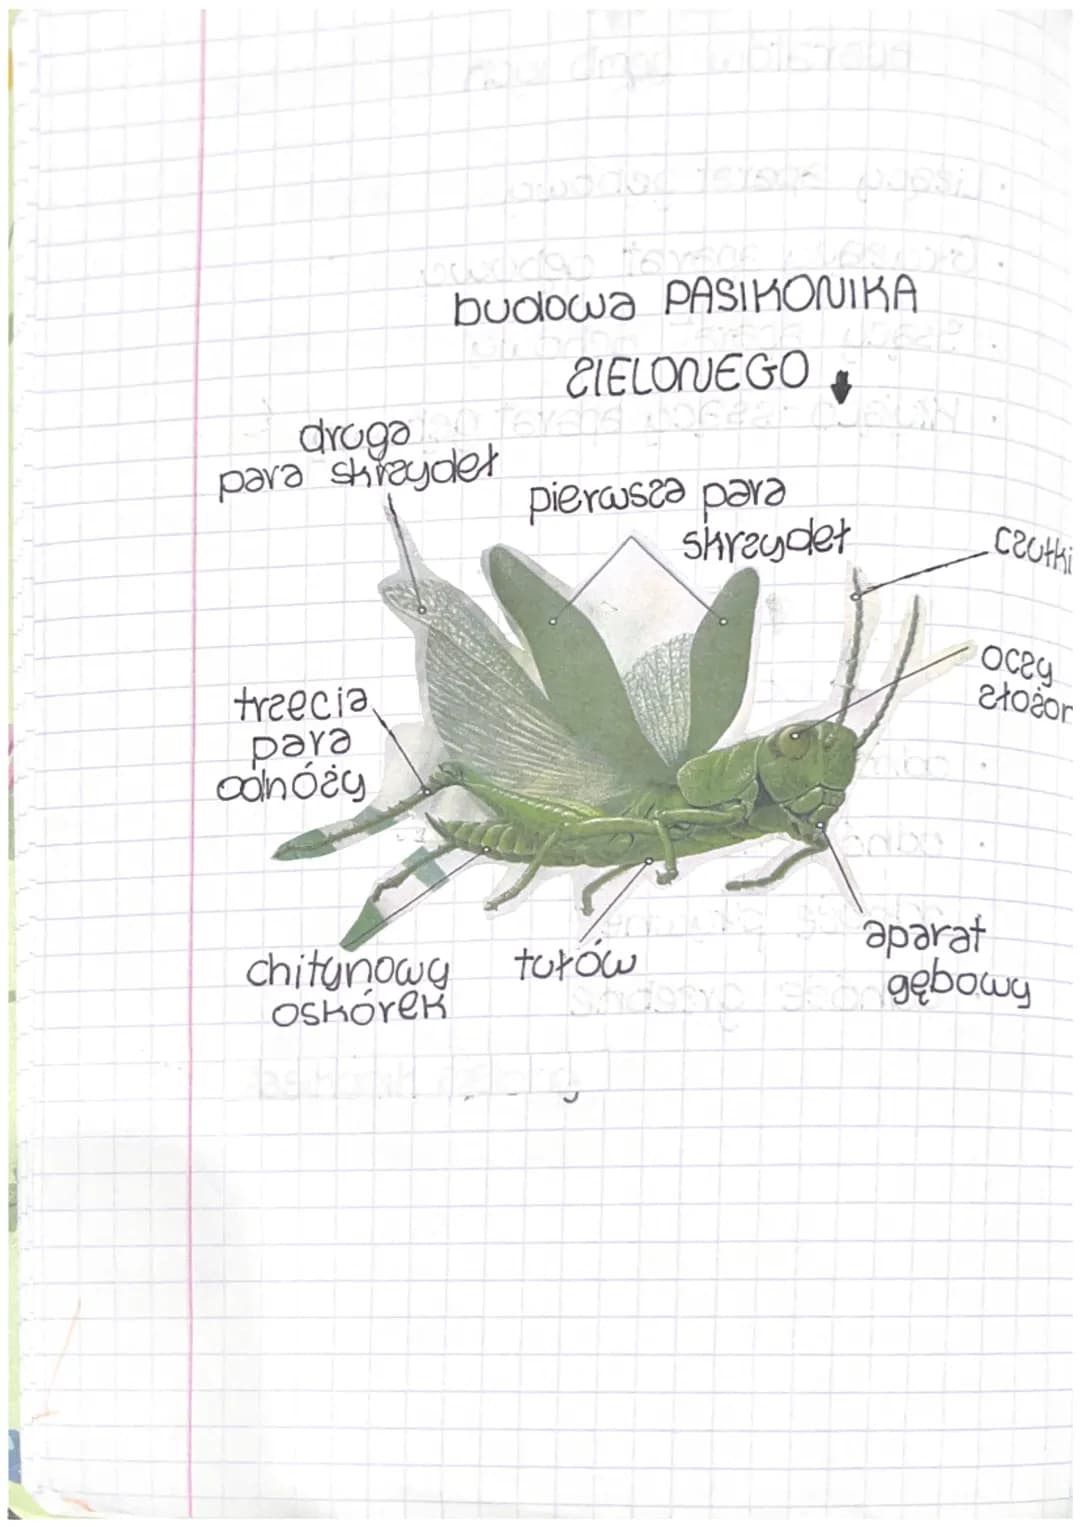 budowa PASIKONIKA
ZIELONEGO
druga
para skrzydeł
pierwsza para
skrzydeł
czułki
oczy
złożon
trzecia
para
odnóży
chitynowy
oskórek
tułów
aparat
gębowy